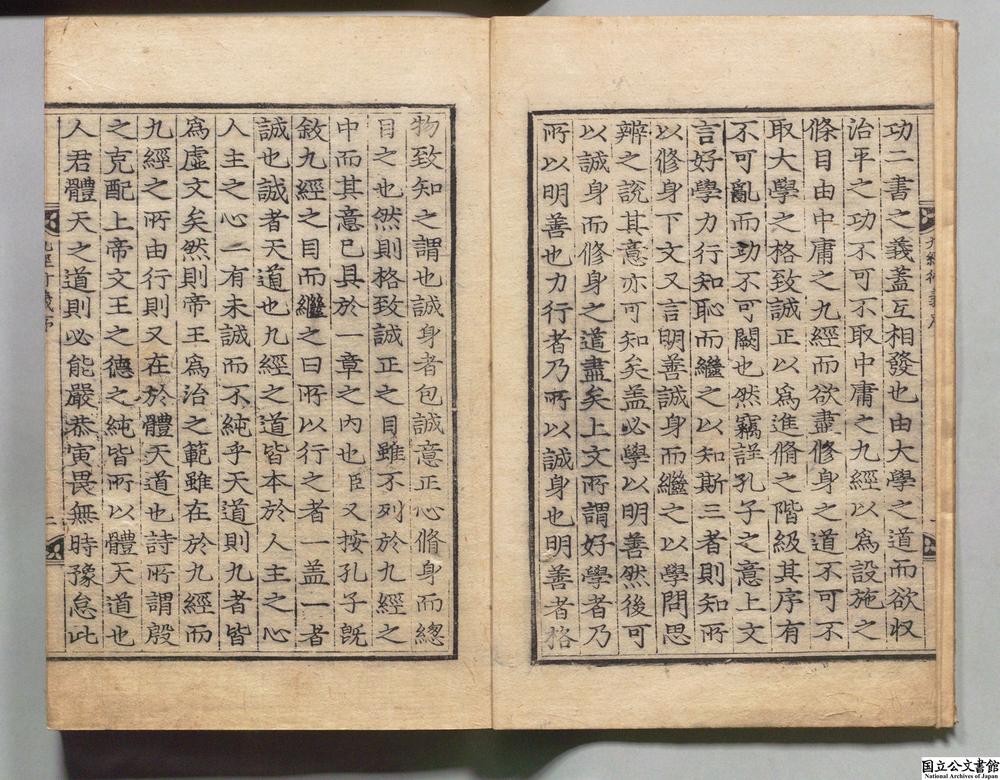 功二書之義蓋互相發也由大學之道而欲収
治平之功不可不取中庸之九經以爲設施之
條目由中庸之九經而欲盡修身之道不可不
取大學之格致誠正以爲進脩之階級其序有
不可亂而功不可闕也然竊詳孔子之意上文
言好學力行知恥而繼之以知斯三者則知所
以修身下文又言明善誠身而繼之以學問思
辨之說其意亦可知矣盖必學以明善然後可
以誠身而修身之道盡矣上文所謂好學者乃
所以明善也力行者乃所以誠身也明善者格
物致知之謂也誠身者包誠意正心脩身而總
目之也然則格致誠正之目雖不列於九經之
中而其意已具於一章之內也臣又按孔子旣
敘九經之目而繼之曰所以行之者一盖一者
誠也誠者天道也九經之道皆本於人主之心
人主之心一有未誠而不純乎天道則九者皆
爲虛文矣然則帝王爲治之範雖在於九經而
九經之所由行則又在於體天道也詩所謂殷
之克配上帝文王之德之純皆所以體天道也
人君體天之道則必能嚴恭寅畏無時豫怠此
九經衍義序
国立公文書館
National Archives of Japan